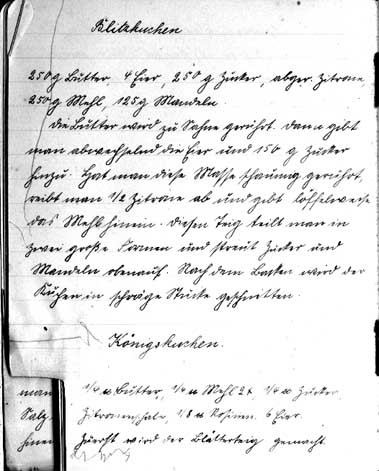 Blitzkuchen
250 g Butter, 4 Eier, 250 g Zucker, abger. Zitrone,
250 g Mehl, 125 g Mandeln.
Die Butter wird zu Sahne gerührt. dann gibt
man abwechselnd die Eier und 150 g Zucker
hinzu. Hat man diese Masse schaumig gerührt,
reibt man 1/2 Zitrone ab und gibt löffelweise
das Mehl hinein. Diesen Teig teilt man in
zwei große Formen und streut Zucker und
Mandeln obenauf. Nach dem Backen wird der
Kuchen in schräge Stücke geschnitten.
Königskuchen.
man 1/4 Butter, 1/4 Mehl 1/4 Zucker
Salz Zitronenschale, 1/8 Rosinen. 6 Eier
hinein Zuerst wird der Blätterteig gemacht.